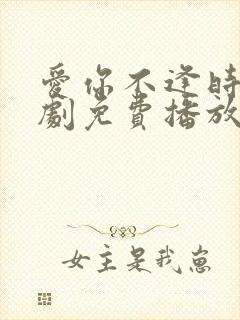 愛你不逢時
劇免費播放
女主是我崽